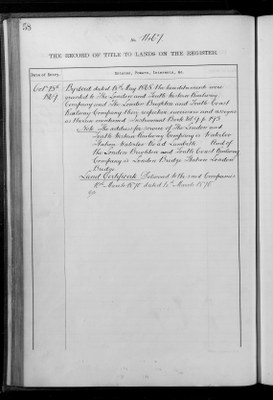 58
No 1867.
THE RECORD OF TITLE TO LANDS ON THE REGISTER.
Date of Entry.
Estates, Powers, Interests, &c.
Octr 19th
1869
By deed dated 18th May 1868 the lands &c were
granted to The London and South Western Railway
Company and The London Brighton and South Coast
Railway Company their respective successors and assigns
as therein mentioned. Instrument Book Vol 9 p. 193
Note The address for service of The London and
South Western Railway Company is Waterloo
Station Waterloo Road Lambeth And of
the London Brighton and South Coast Railway
Company is London Bridge Station London
Bridge
Land Certificate Delivered to the said Companies
March 1870 dated March 1870